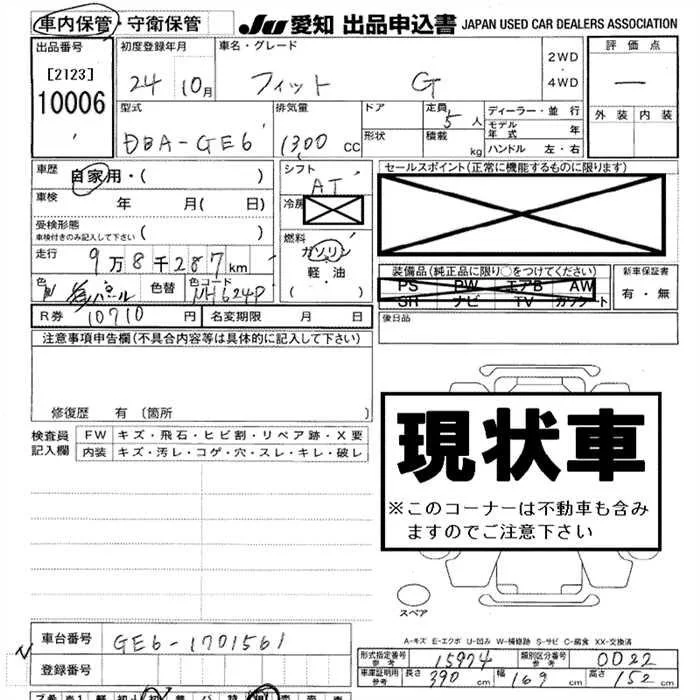 車内保管・守衛保管
JU 愛知 出品申込書 JAPAN USED CAR DEALERS ASSOCIATION
出品番号
[2123]
10006
初度登録年月
24 10月
車名・グレード
フィット G
2WD
・
4WD
評価点
—
外装 内装
型式
DBA-GE6
排気量
1300 cc
ドア
形状
定員
5人
積載
kg
ディーラー・並行
モデル年式 年
ハンドル 左・右
車歴
自家用・( )
車検 年 月( 日)
受検形態
車検付きのみ記入して下さい ( )
走行
9万8千287km
色
パール
色替
色コード
NH624P
R券 10710 円
名変期限 月 日
シフト
AT
冷房
燃料
ガソリン
軽・油
・( )
セールスポイント(正常に機能するものに限ります)
装備品(純正品に限り○をつけてください)
PS PW エアB AW
SH ナビ TV ガクシート
新車保証書
有・無
後日品
注意事項申告欄(不具合内容等は具体的に記入して下さい)
修復歴 有〔箇所
検査員記入欄
FW キズ・飛石・ヒビ割・リペア跡・X要
内装 キズ・汚レ・コゲ・穴・スレ・キレ・破レ
現状車
※このコーナーは不動車も含み
ますのでご注意下さい
スペア
A-キズ E-エクボ U-凹み W-補修跡 S-サビ C-腐食 XX-交換済
車台番号 GE6-1701561
登録番号
形式指定番号
参考
15974
類別区分番号
参考
0022
車庫証明用
参考
長さ 390 cm 幅 169 cm 高さ 152 cm